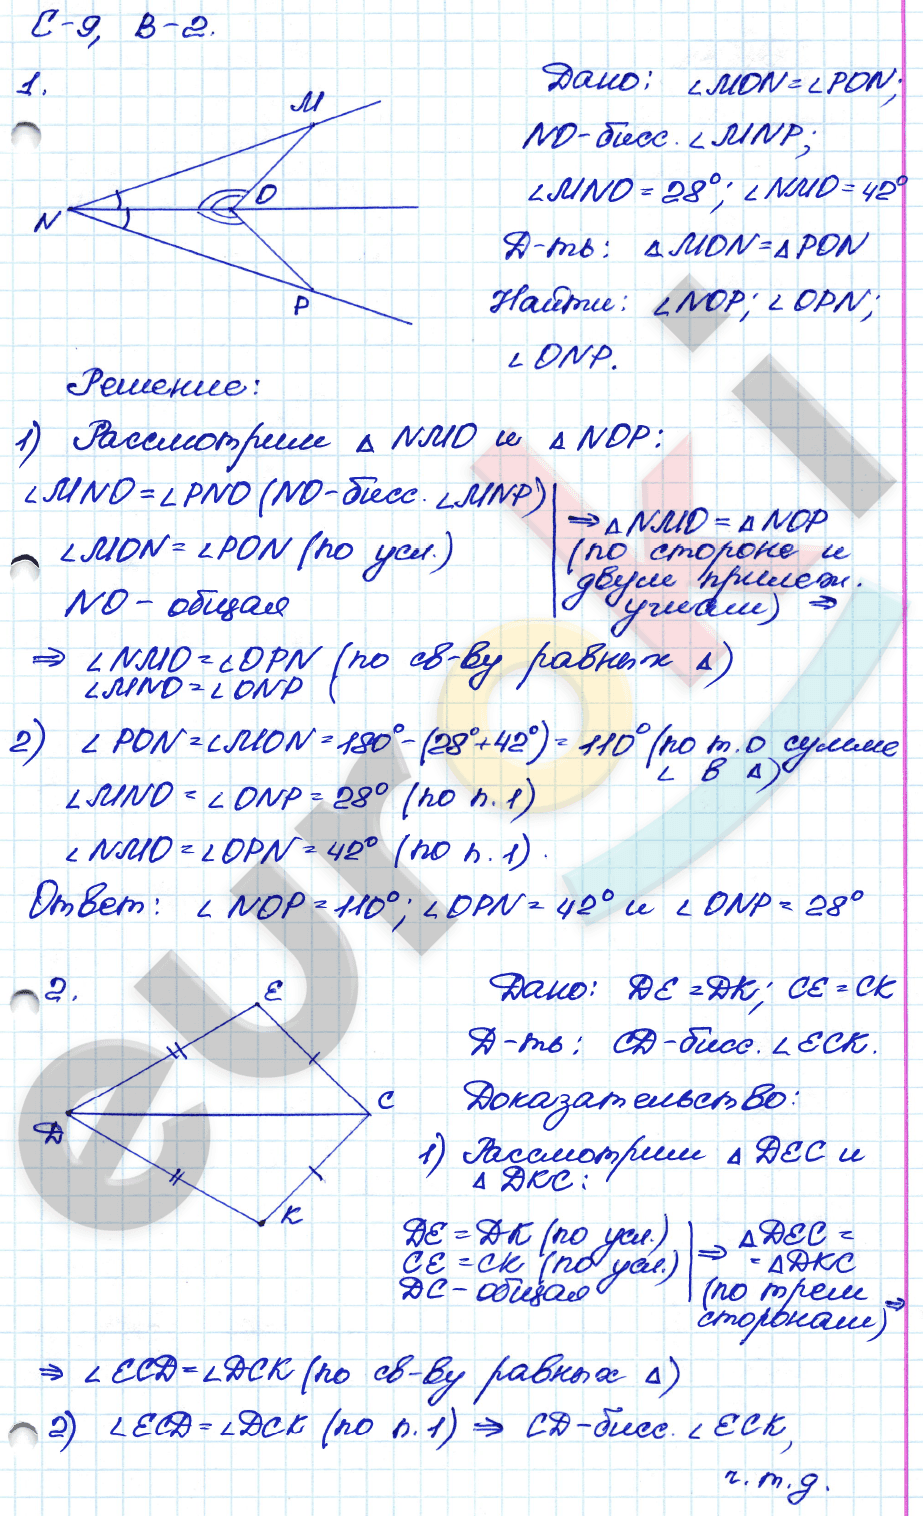 С-9, В-2.
1.
M
N
O
P
Дано: ∠MON = ∠PON;
NO - бисс. ∠MNP;
∠MNO = 28°; ∠NMO = 42°
Д-ть: △MON = △PON
Найти: ∠NOP; ∠OPN;
∠ONP.
Решение:
1) Рассмотрим △ NMO и △ NOP:
∠MNO = ∠PNO (NO - бисс. ∠MNP)
∠MON = ∠PON (по усл.)
NO - общая
⇒ △NMO = △NOP
(по стороне и
двум прилеж.
углам) ⇒
⇒ ∠NMO = ∠OPN (по св-ву равных △)
∠MNO = ∠ONP (
2) ∠PON = ∠MON = 180° - (28° + 42°) = 110° (по т. о сумме
∠ в △)
∠MNO = ∠ONP = 28° (по п. 1)
∠NMO = ∠OPN = 42° (по п. 1).
Ответ: ∠NOP = 110°; ∠OPN = 42° и ∠ONP = 28°
2.
E
D
C
K
Дано: DE = DK; CE = CK
Д-ть: CD - бисс. ∠ECK.
Доказательство:
1) Рассмотрим △ DEC и
△ DKC:
DE = DK (по усл.)
CE = CK (по усл.)
DC - общая
⇒ △DEC =
= △DKC
(по трем
сторонам) ⇒
⇒ ∠ECD = ∠DCK (по св-ву равных △)
2) ∠ECD = ∠DCK (по п. 1) ⇒ CD - бисс. ∠ECK,
ч.т.д.
euroki